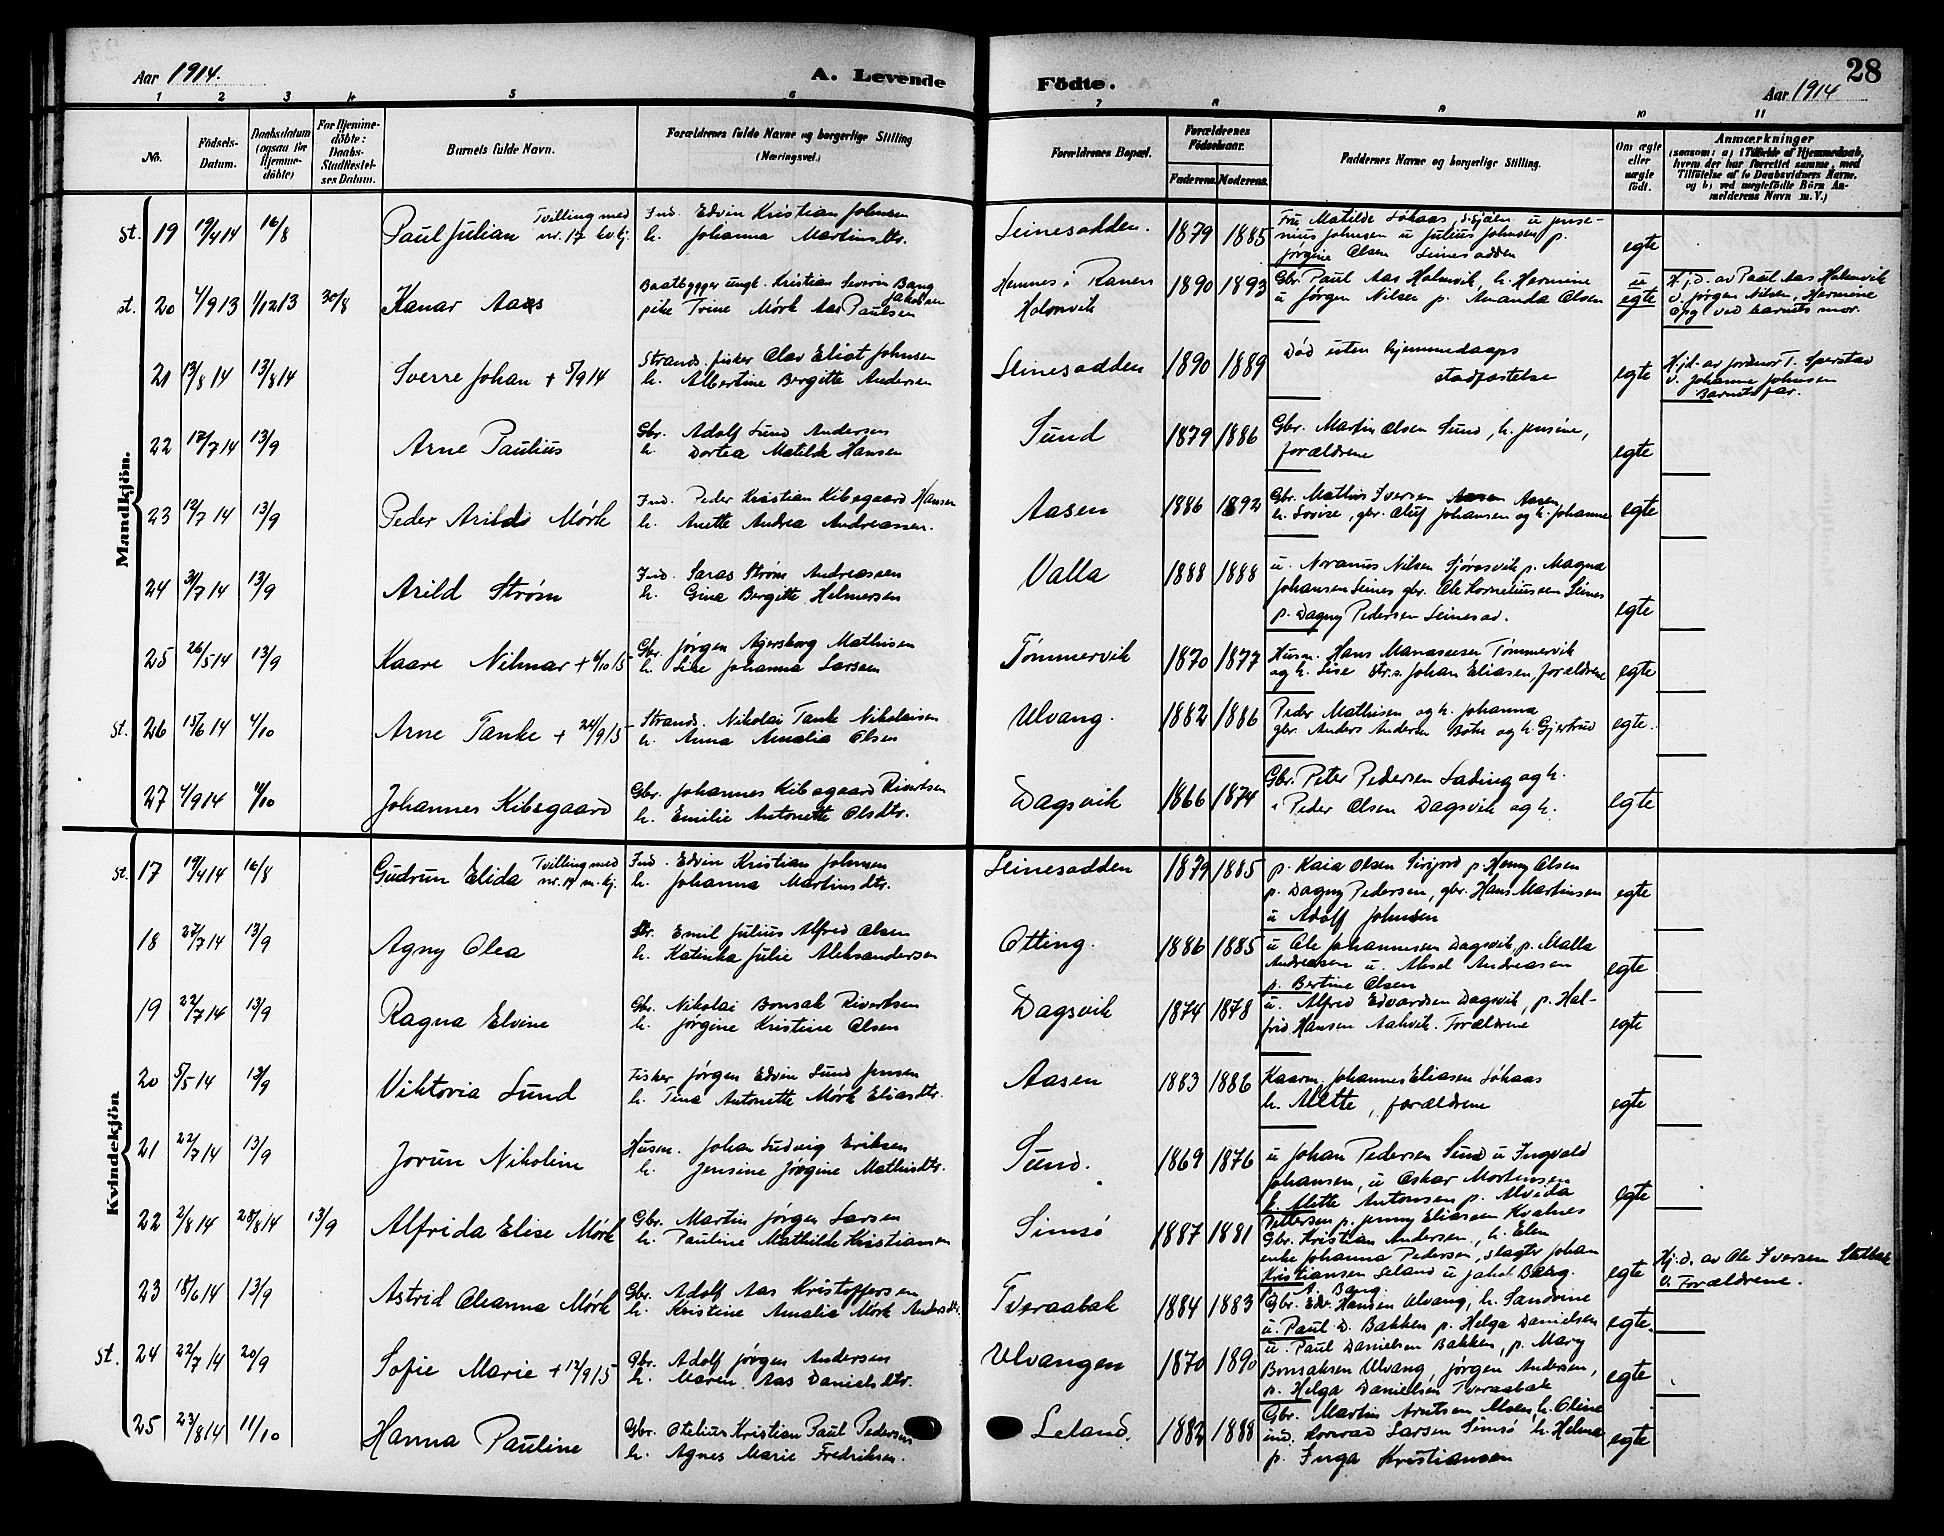 Aar 1914. A. Levende Födte. Aar 1914 28
1 2 3 4 5 6 7 8 9 10 11
No. Födsels-Datum. Daabsdatum (ogsaa for Hjemme-döbte) For Hjemme-döbte: Daabs-Stadfæstel-ses Datum. Barnets fulde Navn. Forældrenes fulde Navne og borgerlige Stilling (Næringsvei.) Forældrenes Bopæl. Forældrenes Födselsaar. Faderens. Moderens. Faddernes Navne og borgerlige Stilling. Om ægte eller uægte födt. Anmærkninger (saasom: a) i Tilfælde af Hjemmedaab, hvem der har forrettet samme, med Tilföielse af to Daabsvidners Navne, og b) ved uægtefödte Börn An-melderens Navn m. V.)
Mandkjön.
st. 19 19/4 14 16/8 Paul Julian Tvilling med nr. 17 kvkj.
Ind. Edvin Kristian Johnsen
h. Johanna Martinsdtr.
Leinesodden. 1879 1885
nius Johnsen u Julius Johnsen p.
Jørgine Olsen Leinesodden
egte
st. 20 4/9 13 1/12 13 30/8 Kanar Aas
Baatbygger ungk. Kristian Severin Bang Jakobsen
pike Trine Mørk Aas Paulsen
Hemnes i Ranen
Holmvik 1890 1893
Gbr. Paul Aas Holmvik, h. Hermine
u Jørgen Nilsen p. Amanda Olsen
u egte
Hj. d. av Paul Aas Holmvik
v. Jørgen Nilsen, Hermine
Opg ved barnets mor.
21 13/8 14 13/8 14 Sverre Johan + 5/9 14
Strands. fisker Olav Eliot Johnsen
h. Albertine Bergitte Andersen
Leinesodden 1890 1889
Død uten hjemmedaaps
stadfæstelse
egte
Hjd. av jordmor T. Sperstad
v. Johanne Johnsen
Barnets far.
22 17/7 14 13/9 Arne Paulius
Gbr. Adolf Sund Andersen
h. Dortea Matilde Hansen
Sund 1879 1886
Gbr. Martin Olsen Sund, h. Jensine,
forældrene
egte
23 19/7 14 13/9 Peder Arild Mørk
Ind. Peder Kristian Kibsgaard Hansen
h. Anette Andrea Andreassen.
Aasen 1886 1892
Gbr. Mathis Iversen Aasen
h. Lovise, gbr. Oluf Johansen og h. Johanne
egte
24 31/7 14 13/9 Arild Strøm
Ind. Saras Strøm Andreassen
h. Gina Bergitte Helmersen
Valla 1888 1888
u. Noranus Nilsen Sjørosvik p. Magna
Johansen Leines gbr. Ole Korneliussen Leines
p. Dagny Pedersen Leinesod.
egte
25 26/5 14 13/9 Kaare Nilmar + 6/10 15
Gbr. Jørgen Agersborg Mathisen
h. Lise Johanna Larsen
Tømmervik 1870 1877
Husm. Hans Manassesen Tømmervik
og h. Lise Str.s. Johan Eliasen, forældrene
egte
st. 26 15/6 14 4/10 Arne Tanke + 24/9 15
Strands. Nikolai Tank Nikolaisen
h. Anna Amalia Olsen
Ulvang. 1882 1886
Peder Mathisen og h. Johanna
gbr. Anders Andersen Botn og h. Gjertrud
egte.
27 4/9 14 4/10 Johannes Kibsgaard
Gbr. Johannes Kibsgaard Rivertsen
h. Emilie Antonette Olsdtr.
Dagsvik 1866 1874
Gbr. Peter Pedersen Lading og h.
" Peder Olsen Dagsvik og h.
egte
Kvindekjön
st. 17 19/4 14 16/8 Gudrun Elida Tvilling med nr. 19 m. kj.
Ind. Edvin Kristian Johnsen
h. Johanna Martinsdtr.
Leinesodden 1879 1885
p. Kaia Olsen Sirijord p Henny Olsen
p. Dagny Pedersen, gbr. Hans Martinsen
u Adolf Johnsen
egte
18 27/7 14 13/9 Agny Olea
Str. Emil Julius Alfred Olsen
h. Katinka Julie Aleksandersen
Otting. 1886 1885
u Ole Johannesen Dagsvik, p. Malla
Andreasen u. Aksel Andreasen
p. Bertine Olsen
egte
19 22/7 14 13/9 Ragna Elvine
Gbr. Nikolai Bonsak Rivertsen
h. Jørgine Kristine Olsen
Dagsvik 1874 1878
u. Alfred Edvardsen Dagsvik, p. Hal-
frid Hansen Aakvik. Forældrene
egte
20 5/5 14 13/9 Viktoria Sund
Fisker Jørgen Edvin Sund Jensen
h. Tina Antonette Mørk Eliasdtr.
Aasen 1883 1886
Kaarm. Johannes Eliasen Løkaas
h. Mette, forældrene
egte
21 22/7 14 13/9 Jorun Nikoline
Husm. Johan Ludvig Eriksen
h. Jensine Jørgine Mathisdtr.
Sund. 1869 1876
u Johan Pedersen Sund u Ingvald
Johansen, u Oskar Mortensen
h. Mette Antonsen p. Alvida
Pettersen p. Jenny Eliassen Kvalnes
egte
22 2/8 14 28/8 14 13/9 Alfrida Elise Mørk
Gbr. Martin Jørgen Larsen
h. Pauline Mathilde Kristiansen
Simsø 1887 1881
Gbr. Kristian Andersen, h. Elen
enke Johanna Pedersen, slagter Johan
Kristiansen Leland u Jakob Bang.
egte
Hj. d. av Ole Iversen Stokbak
v. Forældrene.
23 18/6 14 13/9 Astrid Oleanna Mørk
Gbr. Adolf Aas Kristoffersen
h. Kristine Amalia Mørk Andersdtr.
Tveraabak 1884 1883
A. Bang.
Gbr. Edv. Hansen Ulvang, h. Sandrine
u. Paul D. Bakken p. Helga Danielsen
egte.
st. 24 22/7 14 20/9 Sofie Marie + 12/9 15
Gbr. Adolf Jørgen Andersen
h. Maren Aas Danielsdtr.
Ulvangen 1870 1890
u. Paul Danielsen Bakken, p. Mary
Bonsaksen Ulvang, Jørgen Andersen,
p. Helga Danielsen Tveraabak
egte
25 23/8 14 11/10 Hanna Pauline
Gbr. Otelius Kristian Paul Pedersen
h. Agnes Marie Fredriksen.
Leland. 1882 1888
Gbr. Martin Arntsen Moen, h. Oline
ind. Konrad Larsen Simsø h. Helma
p. Inga Kristiansen
egte